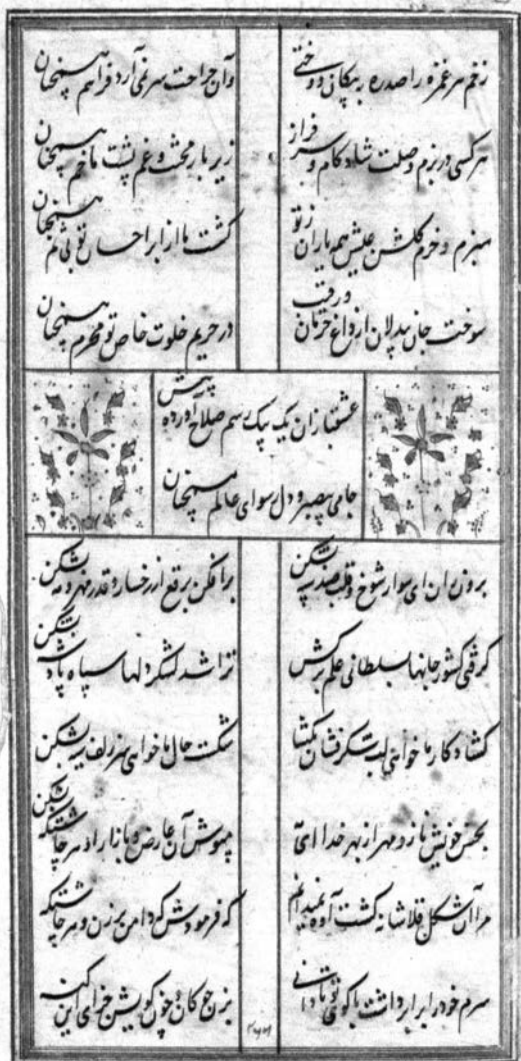 زخم هر غمزه را صد ره به پیکان دوختی وان جراحت سر نمی آرد فراهم همچنان
هر کسی در بزم وصلت شادکام و سرفراز زیر بار محنت و غم پشت ما خم همچنان
سبز و خرم گلشن عیش همه یاران ز تو کشت ما از ابر احسان تو بی نم همچنان
سوخت جان بیدلان از داغ حرمان و رقیب در حریم خلوت خاص تو محرم همچنان
عشقبازان یک بیک رسم صلاح آورده پیش
جامی بیصبر و دل رسوای عالم همچنان
برون ران ای سوار شوخ و قلب صد سپه بشکن برافکن برقع از رخسار و قدر مهر و مه بشکن
گرفتی کشور جانها بسلطانی علم برکش ترا شد لشکر دلها سپاه پادشه بشکن
گشاد کار ما خواهی لب شکرفشان بگشا شکست حال ما خواهی سر زلف سیه بشکن
بحسن خویش نازد مهر از بهر خدا ای بپوش آن عارض و بازار او هر چاشتگه بشکن
مرا آن شکل قلاشانه کشت آوه نمیدانم که فرمودش که دامن برزن و
سرم خود را برابر داشت با گوی تو نادانی بزن چوکان و چون گویش جزای این